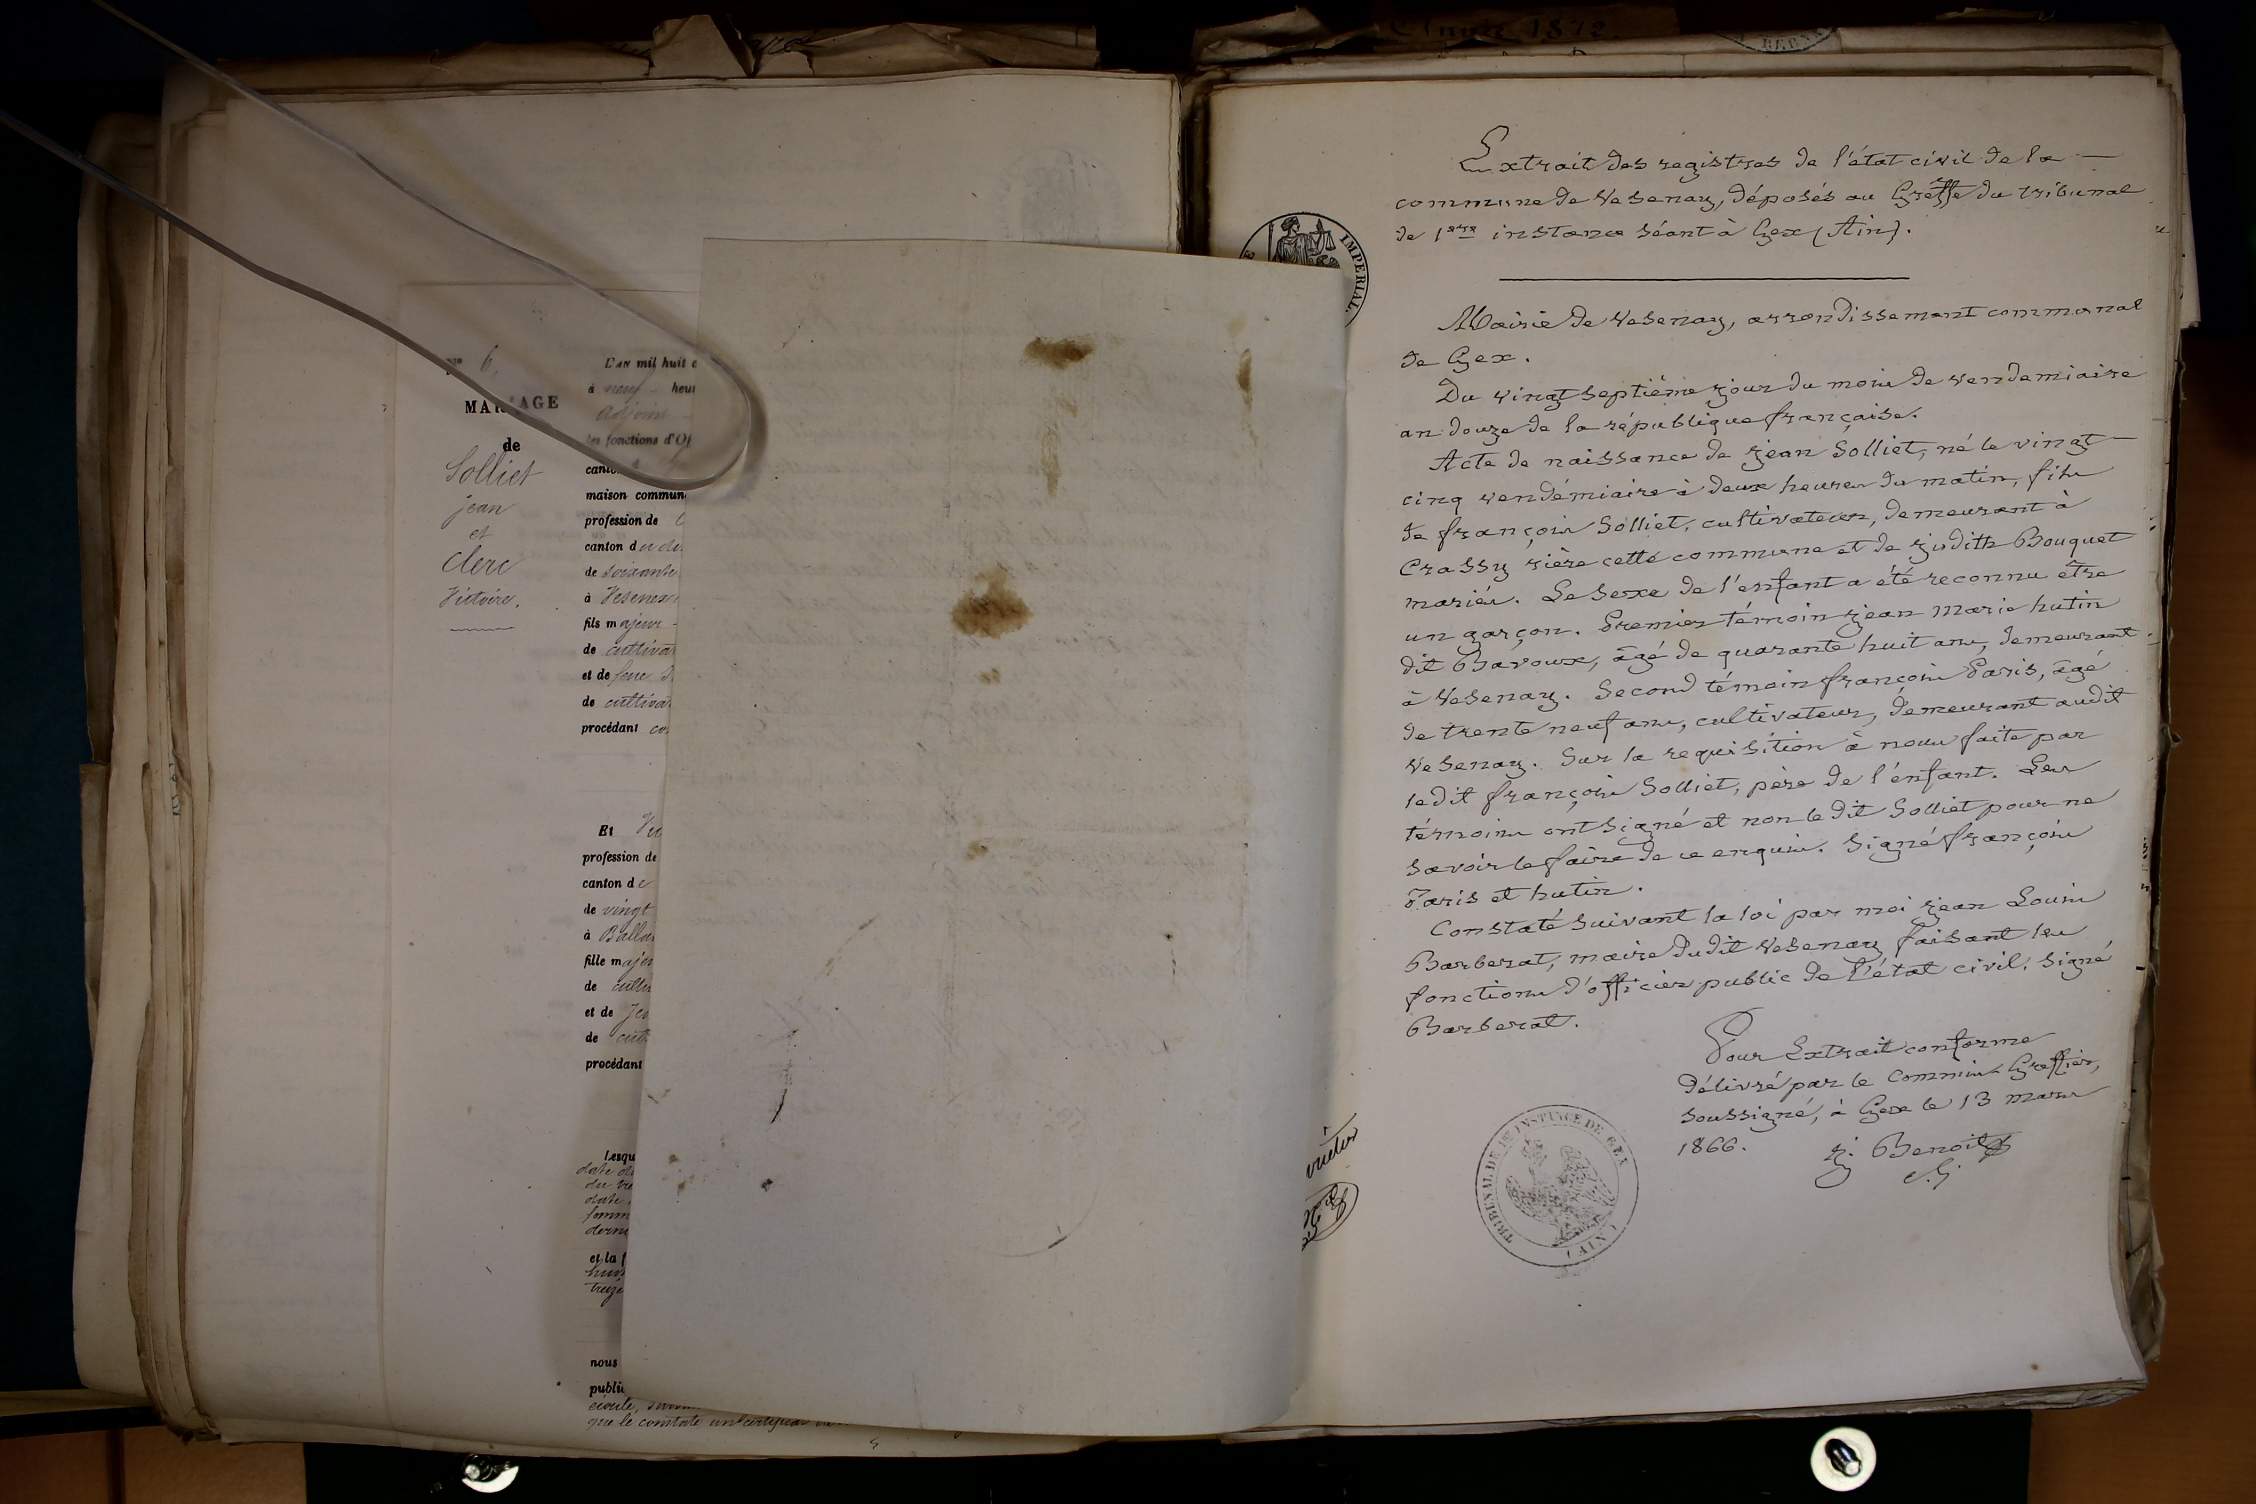 Année 1872.
N° 6.
MARIAGE
de
Solliet
jean
et
Clerc
Victoire.
L'AN mil huit c
à neuf heur
Adjoint
les fonctions d'Of
canto
maison commun
profession de
canton du
de soixante
à Vesenex
fils majeur
de cultiva
et de feue
de cultiva
procédant co
Et Vic
profession de
canton de
de vingt
à Balla
fille majeu
de cultiv
et de Je
de cult
procédant
Lesqu
date d
date
et la f
nous
publi
que le constate un certificat
IMPERIAL
Extrait des registres de l'état civil de la
commune de Vesenay, déposés au Greffe du tribunal
de 1ère instance séant à Gex (Ain).
Mairie de Vesenay, arrondissement communal
de Gex.
Du vingt septième jour du mois de vendemiaire
an douze de la république française.
Acte de naissance de jean Solliet, né le vingt
cinq vendémiaire à deux heures du matin, fils
de françois Solliet, cultivateur, demeurant à
Crassy rière cette commune et de judith Bouquet
mariés. Le sexe de l'enfant a été reconnu être
un garçon. Premier témoin jean marie hutin
dit Bavoux, âgé de quarante huit ans, demeurant
à Vesenay. Second témoin françois Paris, âgé
de trente neuf ans, cultivateur, demeurant audit
Vesenay. Sur la requisition à nous faite par
ledit françois Solliet, père de l'enfant. Les
témoins ont signé et non le dit Solliet pour ne
savoir le faire de ce enquis. Signé françois
Paris et hutin.
Constaté suivant la loi par moi jean Louis
Barberat, maire dudit Vesenay faisant les
fonctions d'officier public de l'état civil. Signé
Barberat.
Pour Extrait conforme
délivré par le Commis Greffier,
soussigné, à Gex le 13 mars
1866.
j. Benoit
TRIBUNAL DE 1RE INSTANCE DE GEX
(AIN)